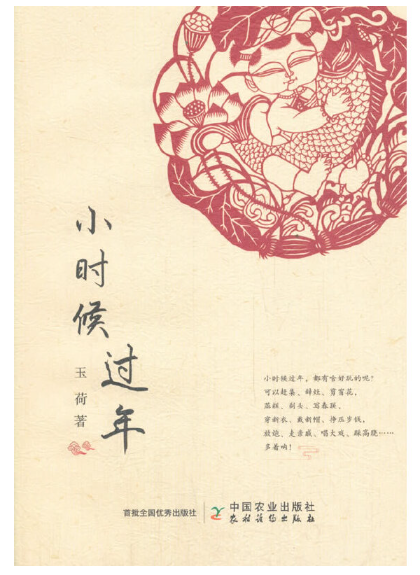 小时候过年
玉荷著
小时候过年，都有啥好玩的呢？
可以赶集、辞灶、剪窗花，
蒸糕、剃头、写春联，
穿新衣、戴新帽、挣压岁钱，
放炮、走亲戚、唱大戏、踩高跷……
多着呐！
首批全国优秀出版社
中国农业出版社
农村读物出版社